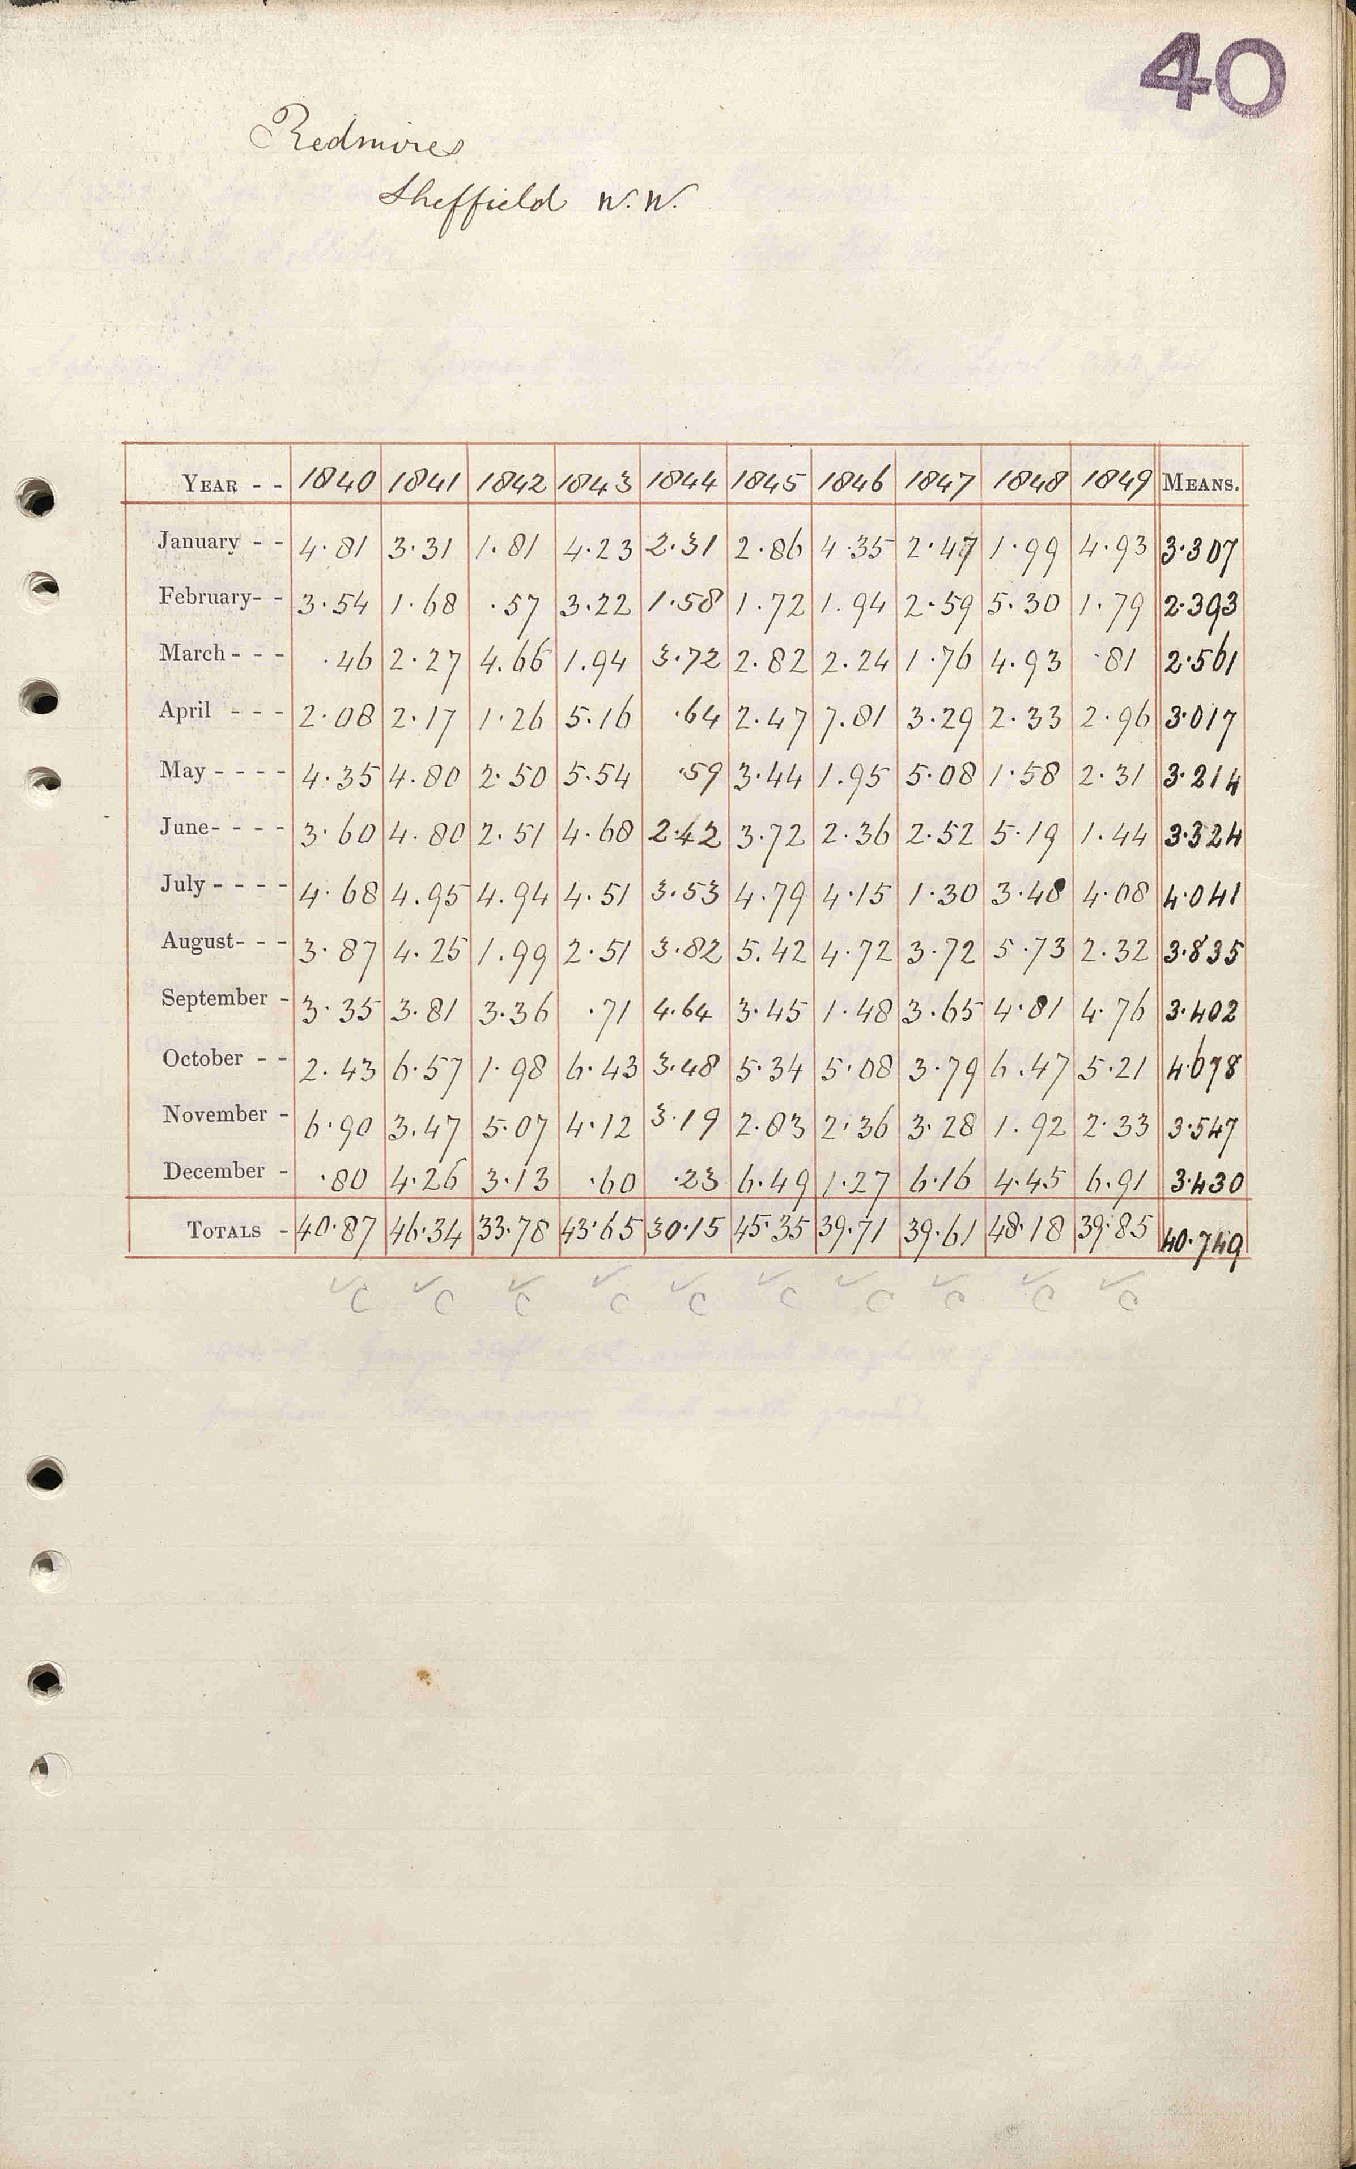 40
Redmires
Sheffield W.W.
YEAR - - 1840 1841 1842 1843 1844 1845 1846 1847 1848 1849 MEANS.
January - - 4.81 3.31 1.81 4.23 2.31 2.86 4.35 2.47 1.99 4.93 3.307
February- - 3.54 1.68 .57 3.22 1.58 1.72 1.94 2.59 5.30 1.79 2.393
March - - - .46 2.27 4.66 1.94 3.72 2.82 2.24 1.76 4.93 .81 2.561
April - - - 2.08 2.17 1.26 5.16 .64 2.47 7.81 3.29 2.33 2.96 3.017
May - - - - 4.35 4.80 2.50 5.54 .59 3.44 1.95 5.08 1.58 2.31 3.214
June- - - - 3.60 4.80 2.51 4.68 2.42 3.72 2.36 2.52 5.19 1.44 3.324
July - - - - 4.68 4.95 4.94 4.51 3.53 4.79 4.15 1.30 3.48 4.08 4.041
August- - - 3.87 4.25 1.99 2.51 3.82 5.42 4.72 3.72 5.73 2.32 3.835
September - 3.35 3.81 3.36 .71 4.64 3.45 1.48 3.65 4.81 4.76 3.402
October - - 2.43 6.57 1.98 6.43 3.48 5.34 5.08 3.79 6.47 5.21 4.678
November - 6.90 3.47 5.07 4.12 3.19 2.83 2.36 3.28 1.92 2.33 3.547
December - .80 4.26 3.13 .60 .23 6.49 1.27 6.16 4.45 6.91 3.430
TOTALS - 40.87 46.34 33.78 43.65 30.15 45.35 39.71 39.61 48.18 39.85 40.749
✓C ✓C ✓C ✓C ✓C ✓C ✓C ✓C ✓C ✓C